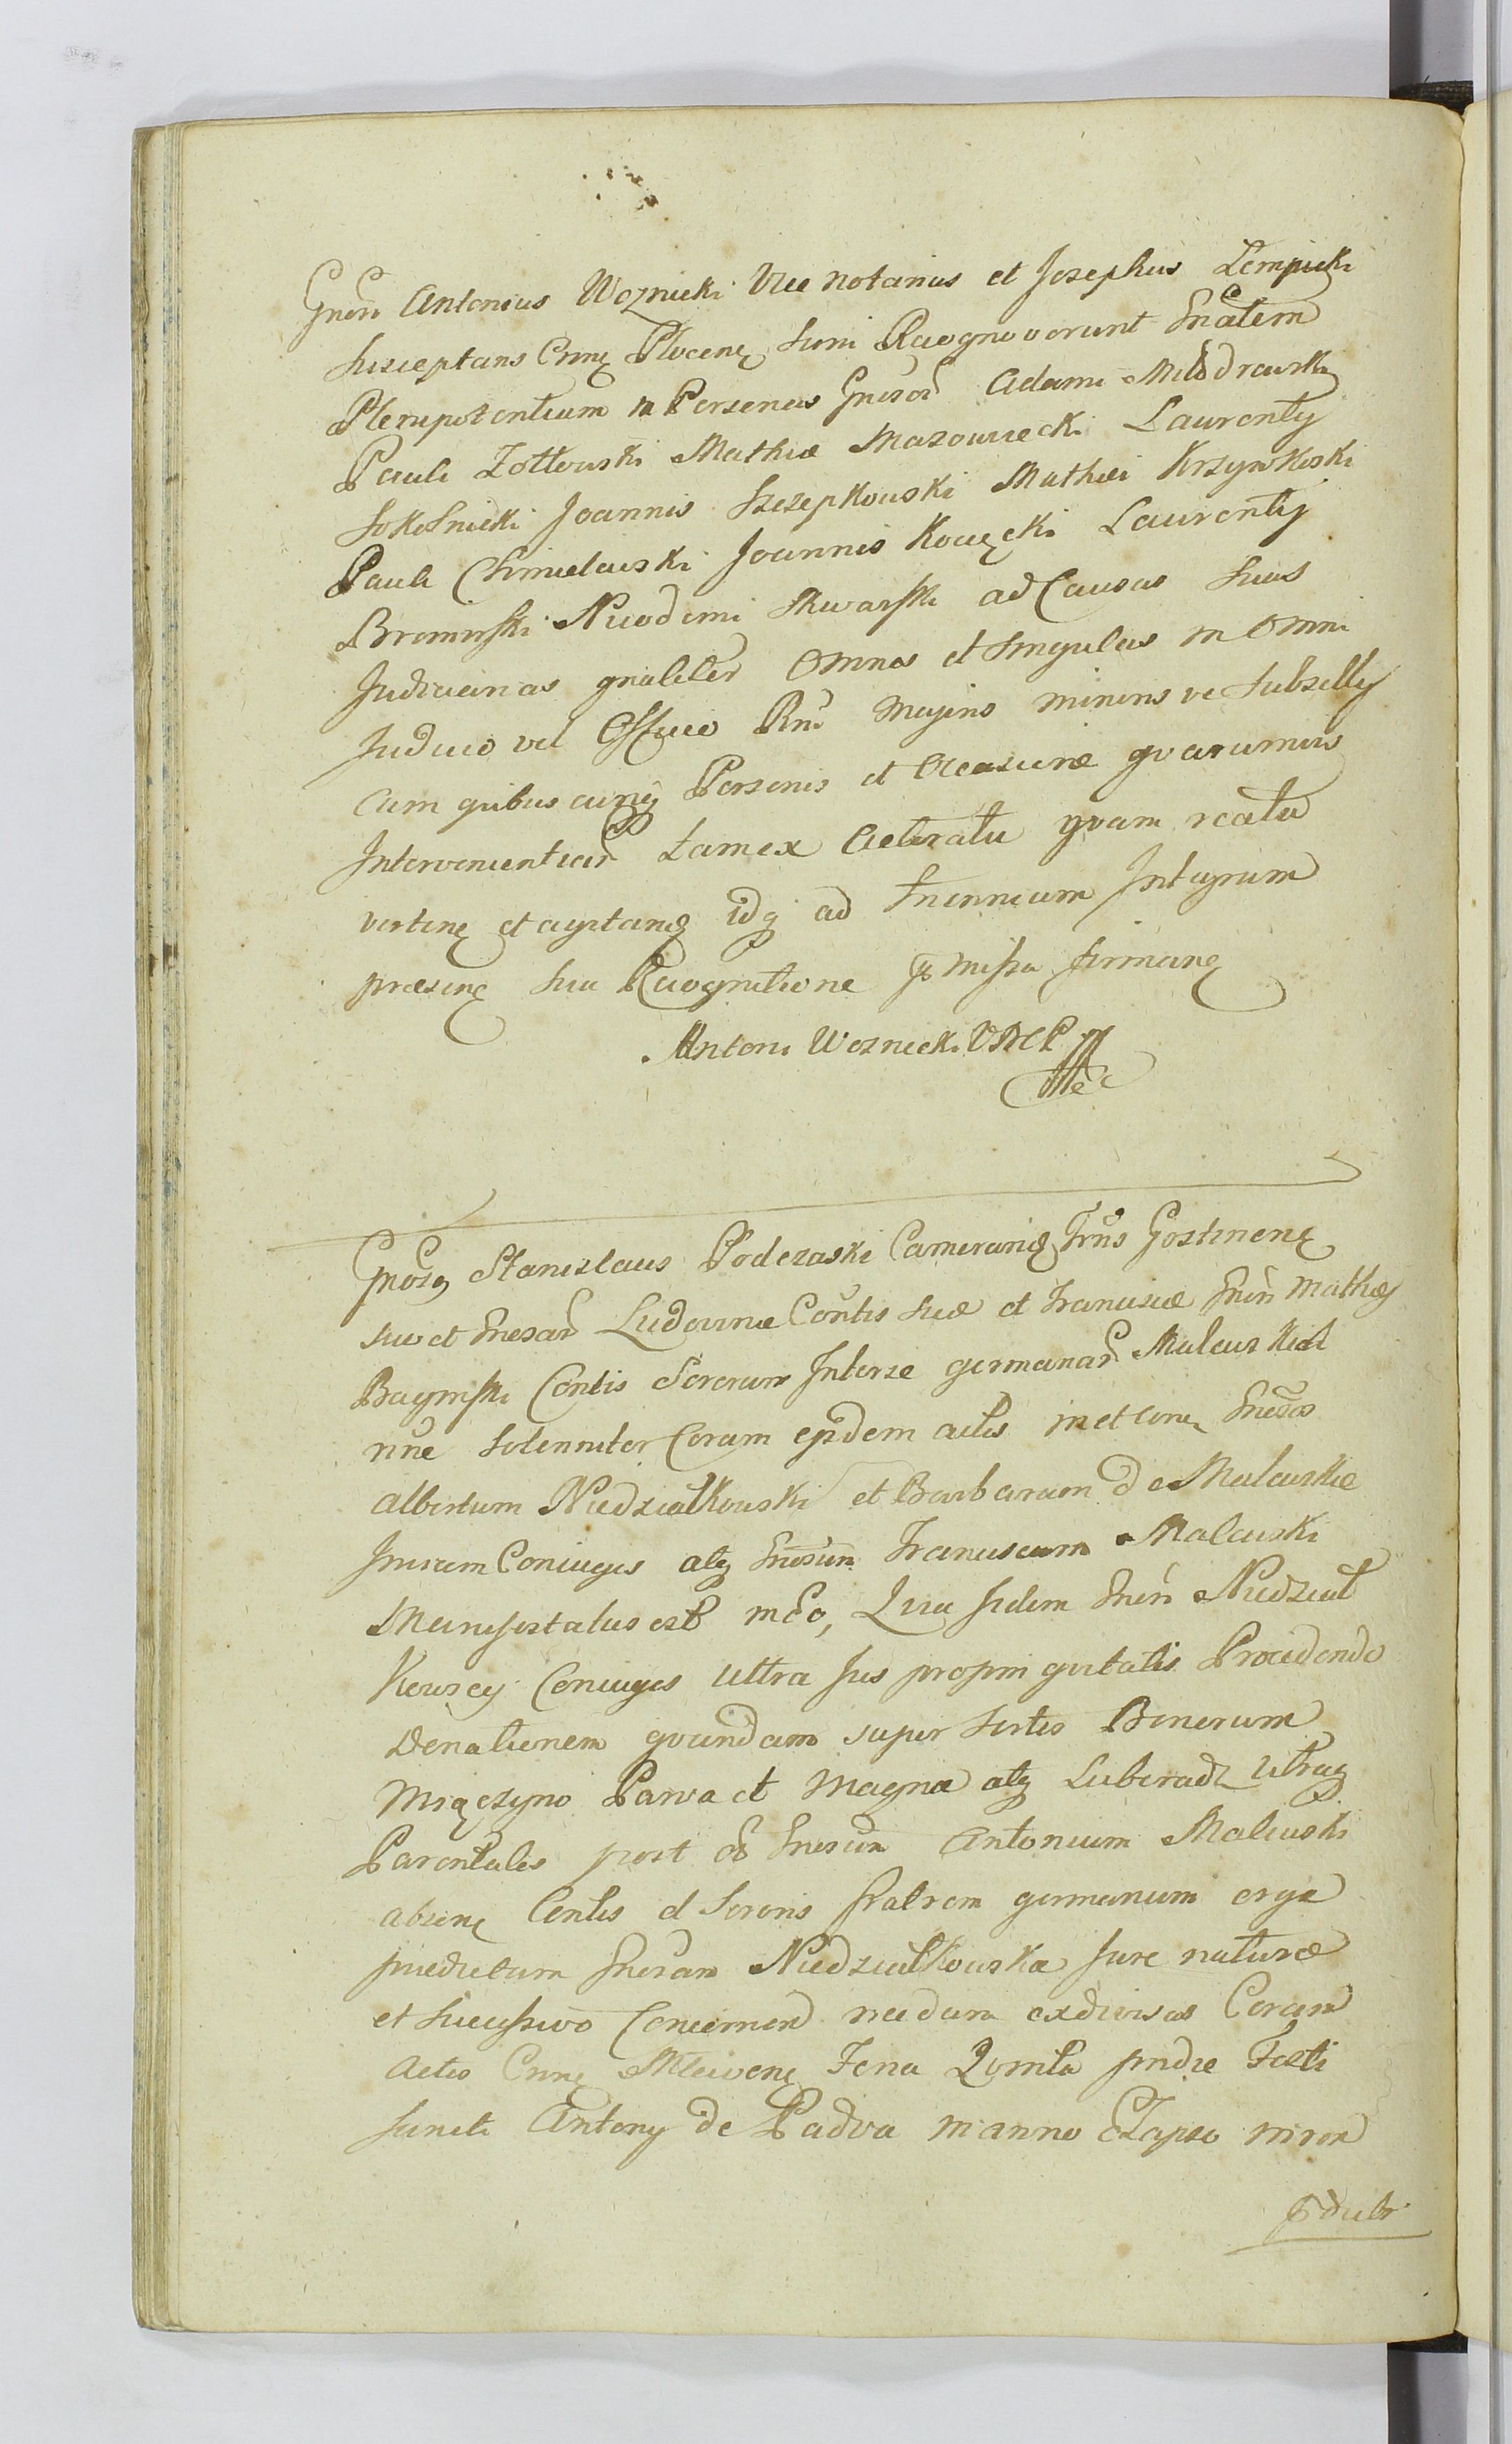 Gnsi Antonius Woznicki Vice Notarius et Josephus Lempicki
Susceptans Crne Plocene suni Recognoverunt Gnalem
Plenipotentiam in Personas Gnsor Adami Młodzawski
Pauli Zołtowski Mathiæ Mazowiecki Laurenty
Sokolnicki Joannis Szczepkowski Mathiæ Krzywkoski
Pauli Chmielewski Joannis Kowęcki Laurenty
Brominski Nicodemi Skwarski ad Causas suas
Judiciarias gnaliter Omnes et Singulas in Omni
Judicio vel Officio Rni Majoris minoris ve Subselly
cum quibuscunq Personis et Occasione quarumvis
Intervenientiar tam ex Actoratu quam reatu
verten et agitan idq ad Triennium Integrum
præsen sua Recognitione missa firman
Antoni Woznicki VNCP
Gnosq Stanislaus Podczaski Camerariq Trns Gostinen
suo et Gnesar Ludovicæ Contis suæ et Franciscæ Gnsi Mathæy
Baginski Contis Sororum Interse germanar Malewskich
nne Solenniter Coram eisdem actis in et con Gnesos
Albertum Niedziałkowski et Barbaram de Malewskie
Primam Coniuges atq Gnosum Franciscum Malewski
Manifestatus est in Eo, Quia fidem Gnsi Niedział
Kowscy Coniuges ultra jus proprin quitatis Procedendo
Donationem quandam super Sortes Bonorum
Miączyno Parva et Magna atq Luberadz utraq
Parentales post Gnesum Antonium Malewski
absen Contis et Sororis fratrem germanum erga
prædictam Gnesam Niedziałkowska jure naturæ
et Successivo Concernen necdum exdivisas Coram
Actis Crne Mlavene Feria Quinta pridie Festi
Sancti Antony de Padva in anno Elapso niron